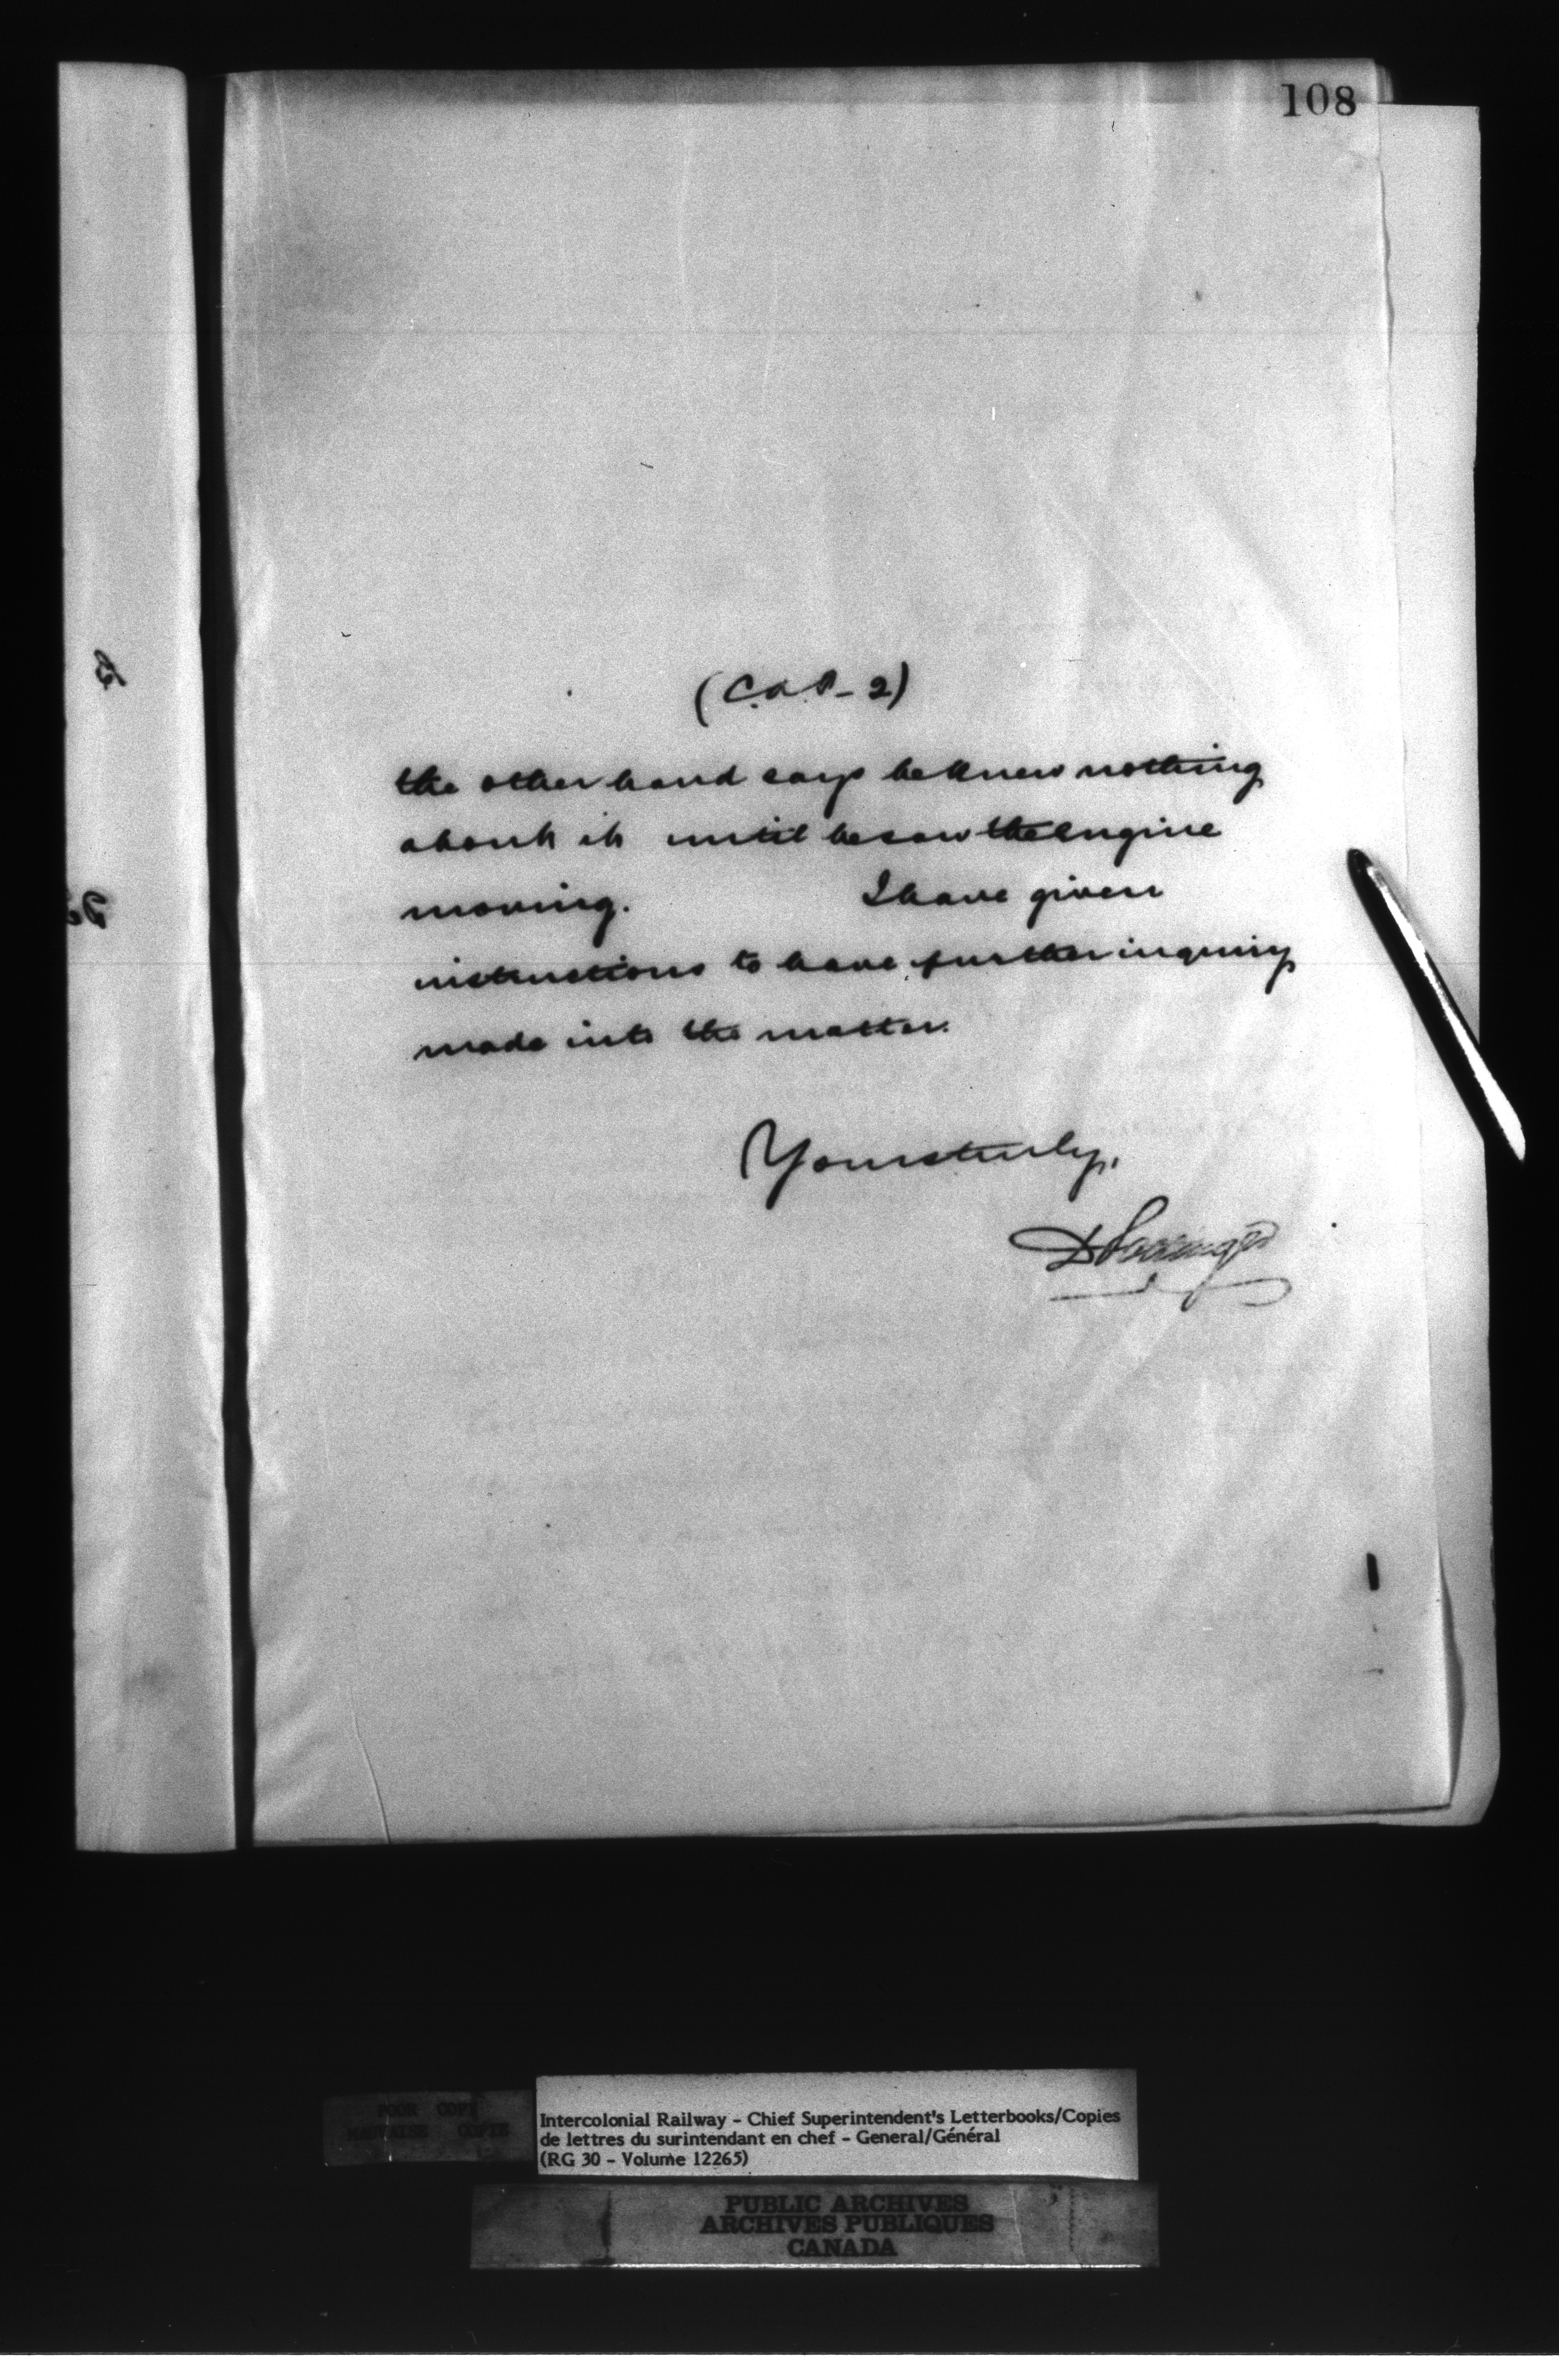 108
(C.O.P. - 2)
the other hand says he knew nothing
about it until he saw the engine
moving. I have given
instructions to have further inquiry
made into the matter.
Yours truly,
D Pottinger
POOR COPY
MAUVAISE COPIE
Intercolonial Railway - Chief Superintendent's Letterbooks/Copies
de lettres du surintendant en chef - General/Général
(RG 30 - Volume 12265)
PUBLIC ARCHIVES
ARCHIVES PUBLIQUES
CANADA